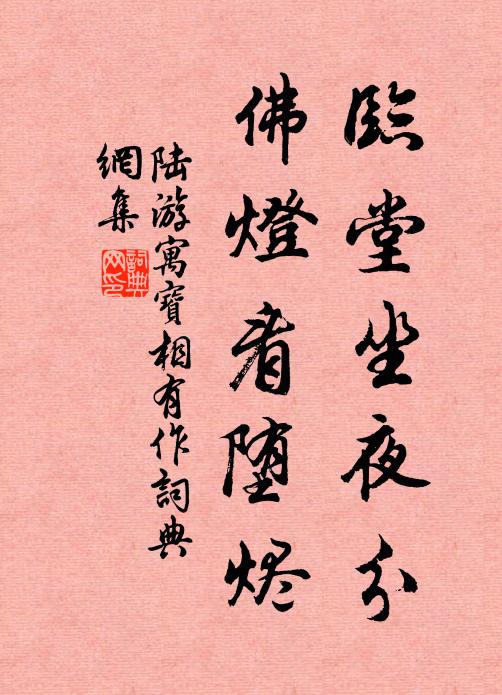 臨堂坐夜分
佛燈看堕烬
陆游寓寶相有作詞典
網集
詞典
网印